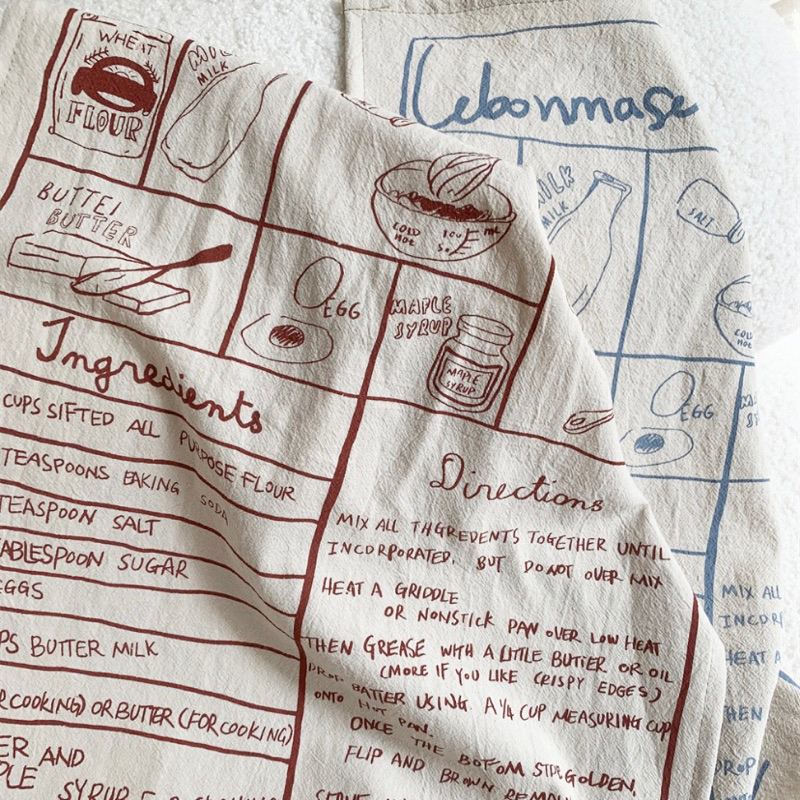 WHEAT
FLOUR
MILK
MILK
BUTTEI
BUTTER
COLD
HOT
EGG
MAPLE
SYRUP
MAPLE
SYRUP
Ingredients
CUPS SIFTED ALL PURPOSE FLOUR
TEASPOONS BAKING SODA
TEASPOON SALT
TABLESPOON SUGAR
EGGS
PS BUTTER MILK
R COOKING) OR BUTTER (FOR COOKING)
ER AND
PLE SYRUP
Directions
MIX ALL INGREDENTS TOGETHER UNTIL
INCORPORATED, BUT DO NOT OVER MIX
HEAT A GRIDDLE
OR NONSTICK PAN OVER LOW HEAT
THEN GREASE WITH A LITTLE BUTTER OR OIL
(MORE IF YOU LIKE CRISPY EDGES)
DROP BATTER USING A 1/4 CUP MEASURING CUP
ONTO HOT PAN.
ONCE THE BOTTOM SIDE GOLDEN,
FLIP AND BROWN
Lebonmase
MILK
MILK
SALT
COLD
EGG
MIX ALL
INCOR
HEAT A
HEN
DROP